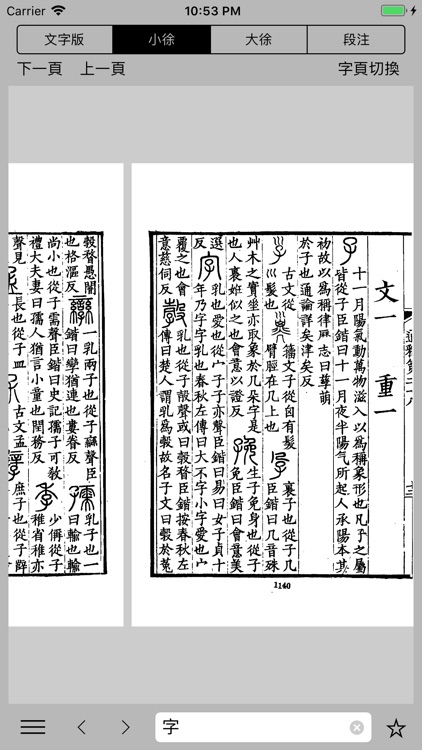 Carrier 10:53 PM
文字版 小徐 大徐 段注
下一頁 上一頁 字頁切換
文一 重一
通釋第二十八
十一月陽氣動萬物滋入以爲稱象形也凡子之屬
皆從子臣鍇曰十一月夜半陽气所起人承陽本其
初故以爲稱律厤志曰孶萌
於子也通論詳矣津矣反
古文從
髮也
籒文子從囟有髮
臂脛在几上也
裹子也從子几
臣鍇曰几音殊
艸木之實坐亦取象於几朶字是
也人裹妊似之也會意以證反
生子免身也從子
免臣鍇曰會意美
選反
字
乳也愛也從宀子子亦聲臣鍇曰易曰女子貞十
年乃字字乳也春秋左傳曰大不字小字愛也宀
覆之也會
意慈伺反
乳也從子㱿聲或曰穀瞀臣鍇按春秋左
傳曰楚人謂乳爲穀故名子文曰穀於菟
穀瞀愚闇
也格漚反
一乳兩子也從子䜌聲臣
鍇曰孿猶連也婁眷反
孺
乳子也一
曰輸也輸
尚小也從子需聲臣鍇曰史記孺子可敎
禮大夫妻曰孺人猶言小童也閏務反
季
少偁從子
稚省稚亦
聲見
長也從子皿
古文孟
庶子也從子辥
1140
字